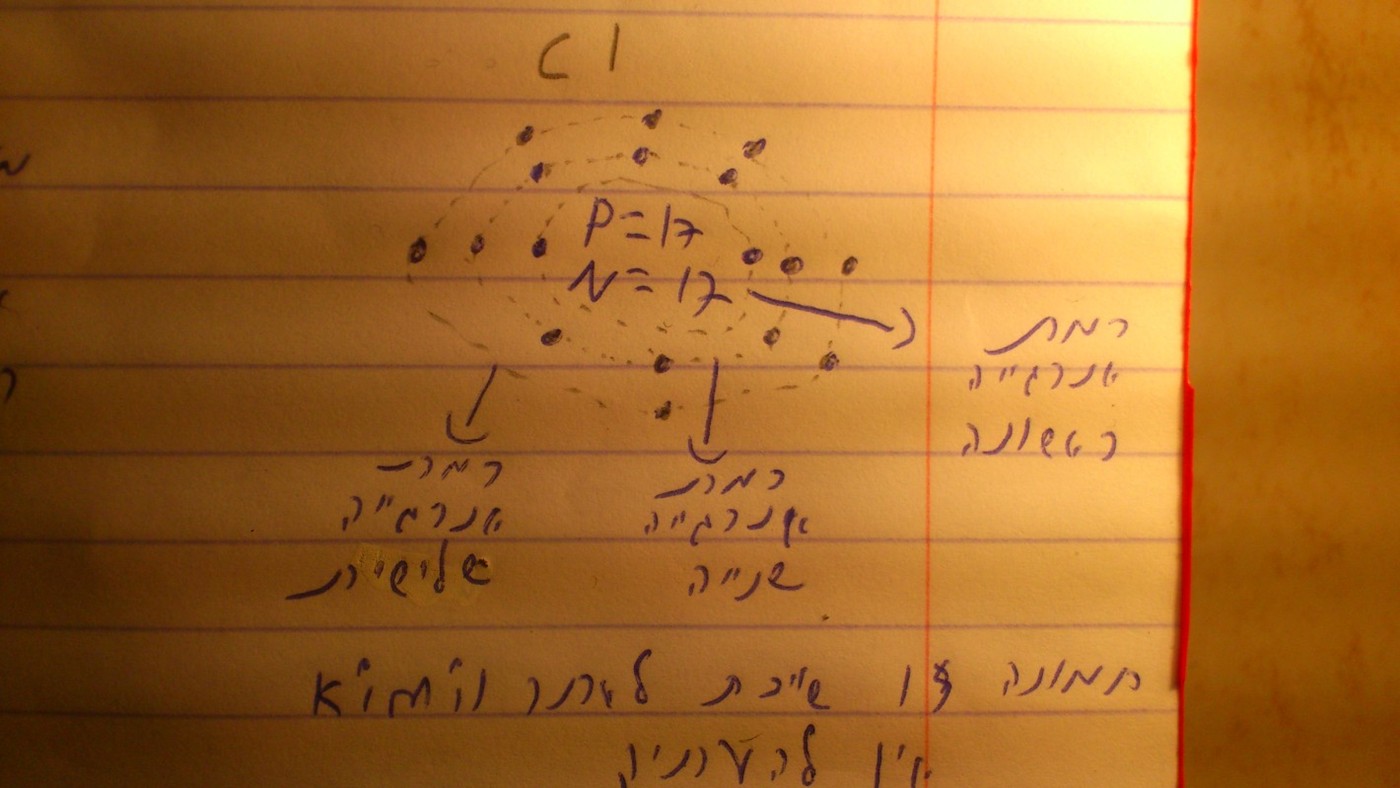 Cl
P=17
N=17
רמת
אנרגייה
ראשונה
רמת
אנרגייה
שנייה
רמת
אנרגייה
שלישית
תמונה זו שייכת לאתר ווימיא
אין להעתיק